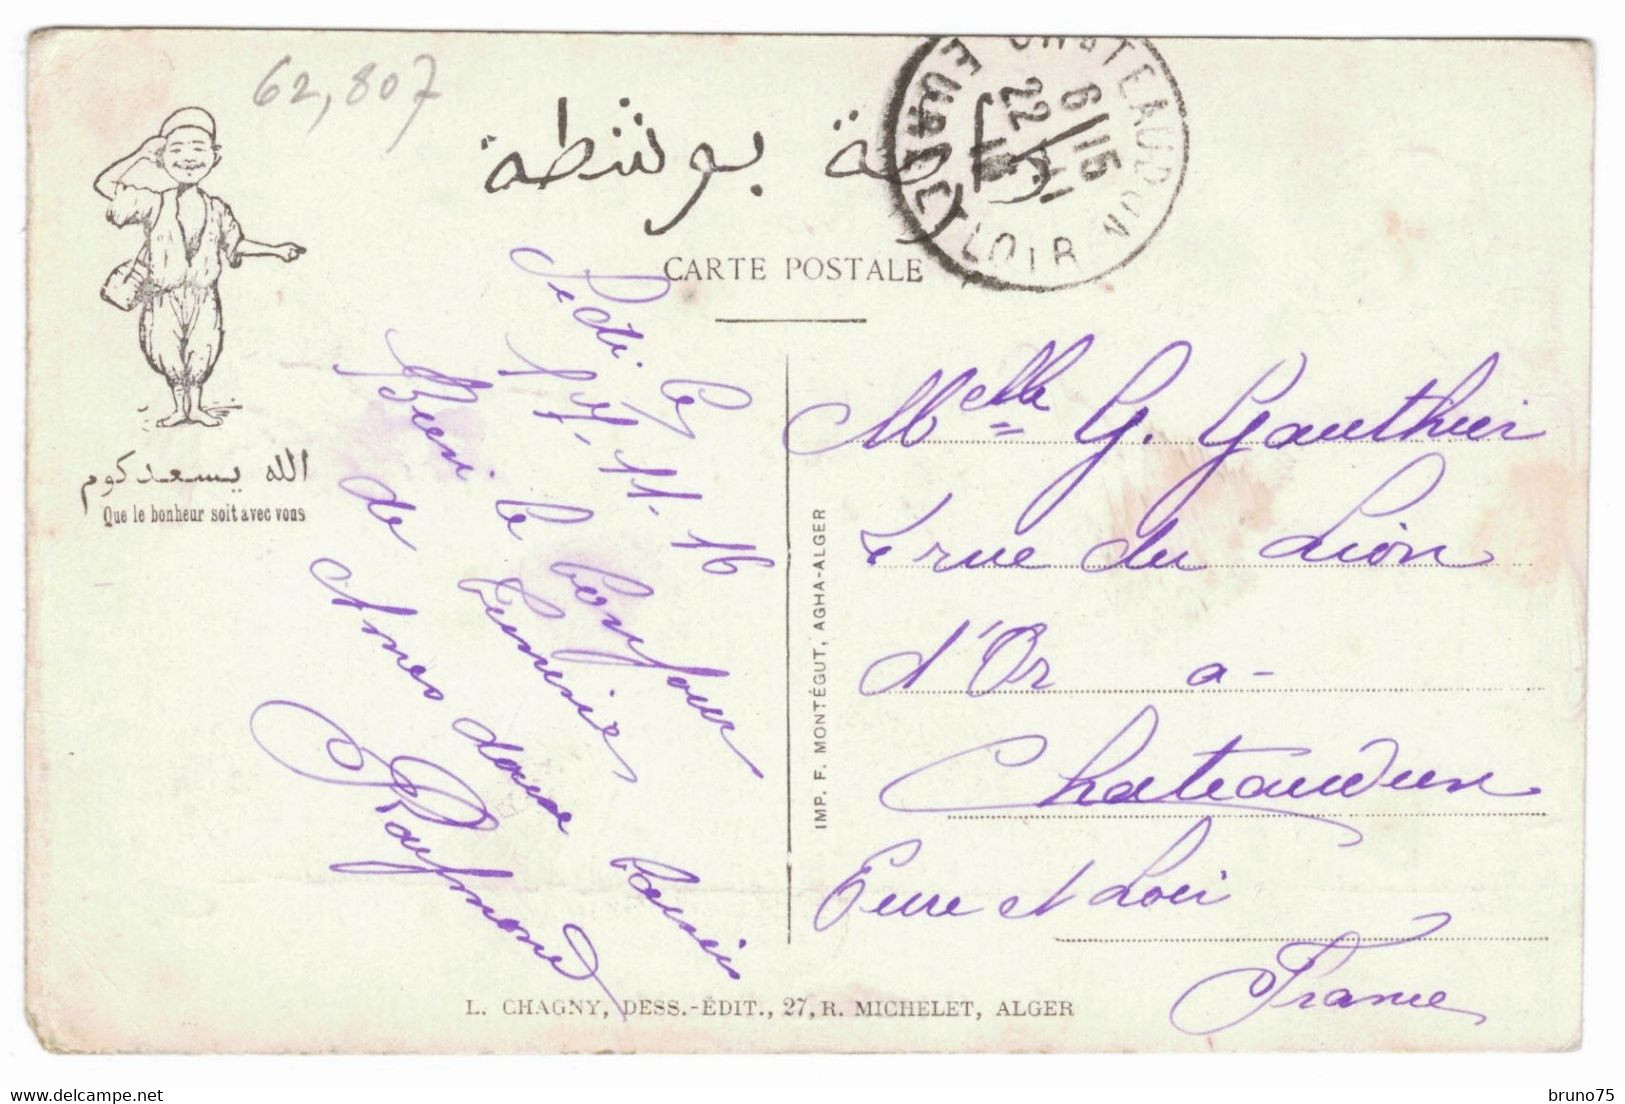 62,807
بوشطة
CHATEAUDUN
6 15
22 11
16
EURE ET LOIR
CARTE POSTALE
الله يسعدكوم
Que le bonheur soit avec vous
le
17.11.16
Bien le bonjour
de
doux baisers
Raymond
Melle G. Gauthier
rue du Lion
d'Or a-
Chateaudun
Eure et Loir
France
IMP. F. MONTÉGUT, AGHA-ALGER
L. CHAGNY, DESS.-ÉDIT., 27, R. MICHELET, ALGER
bruno75